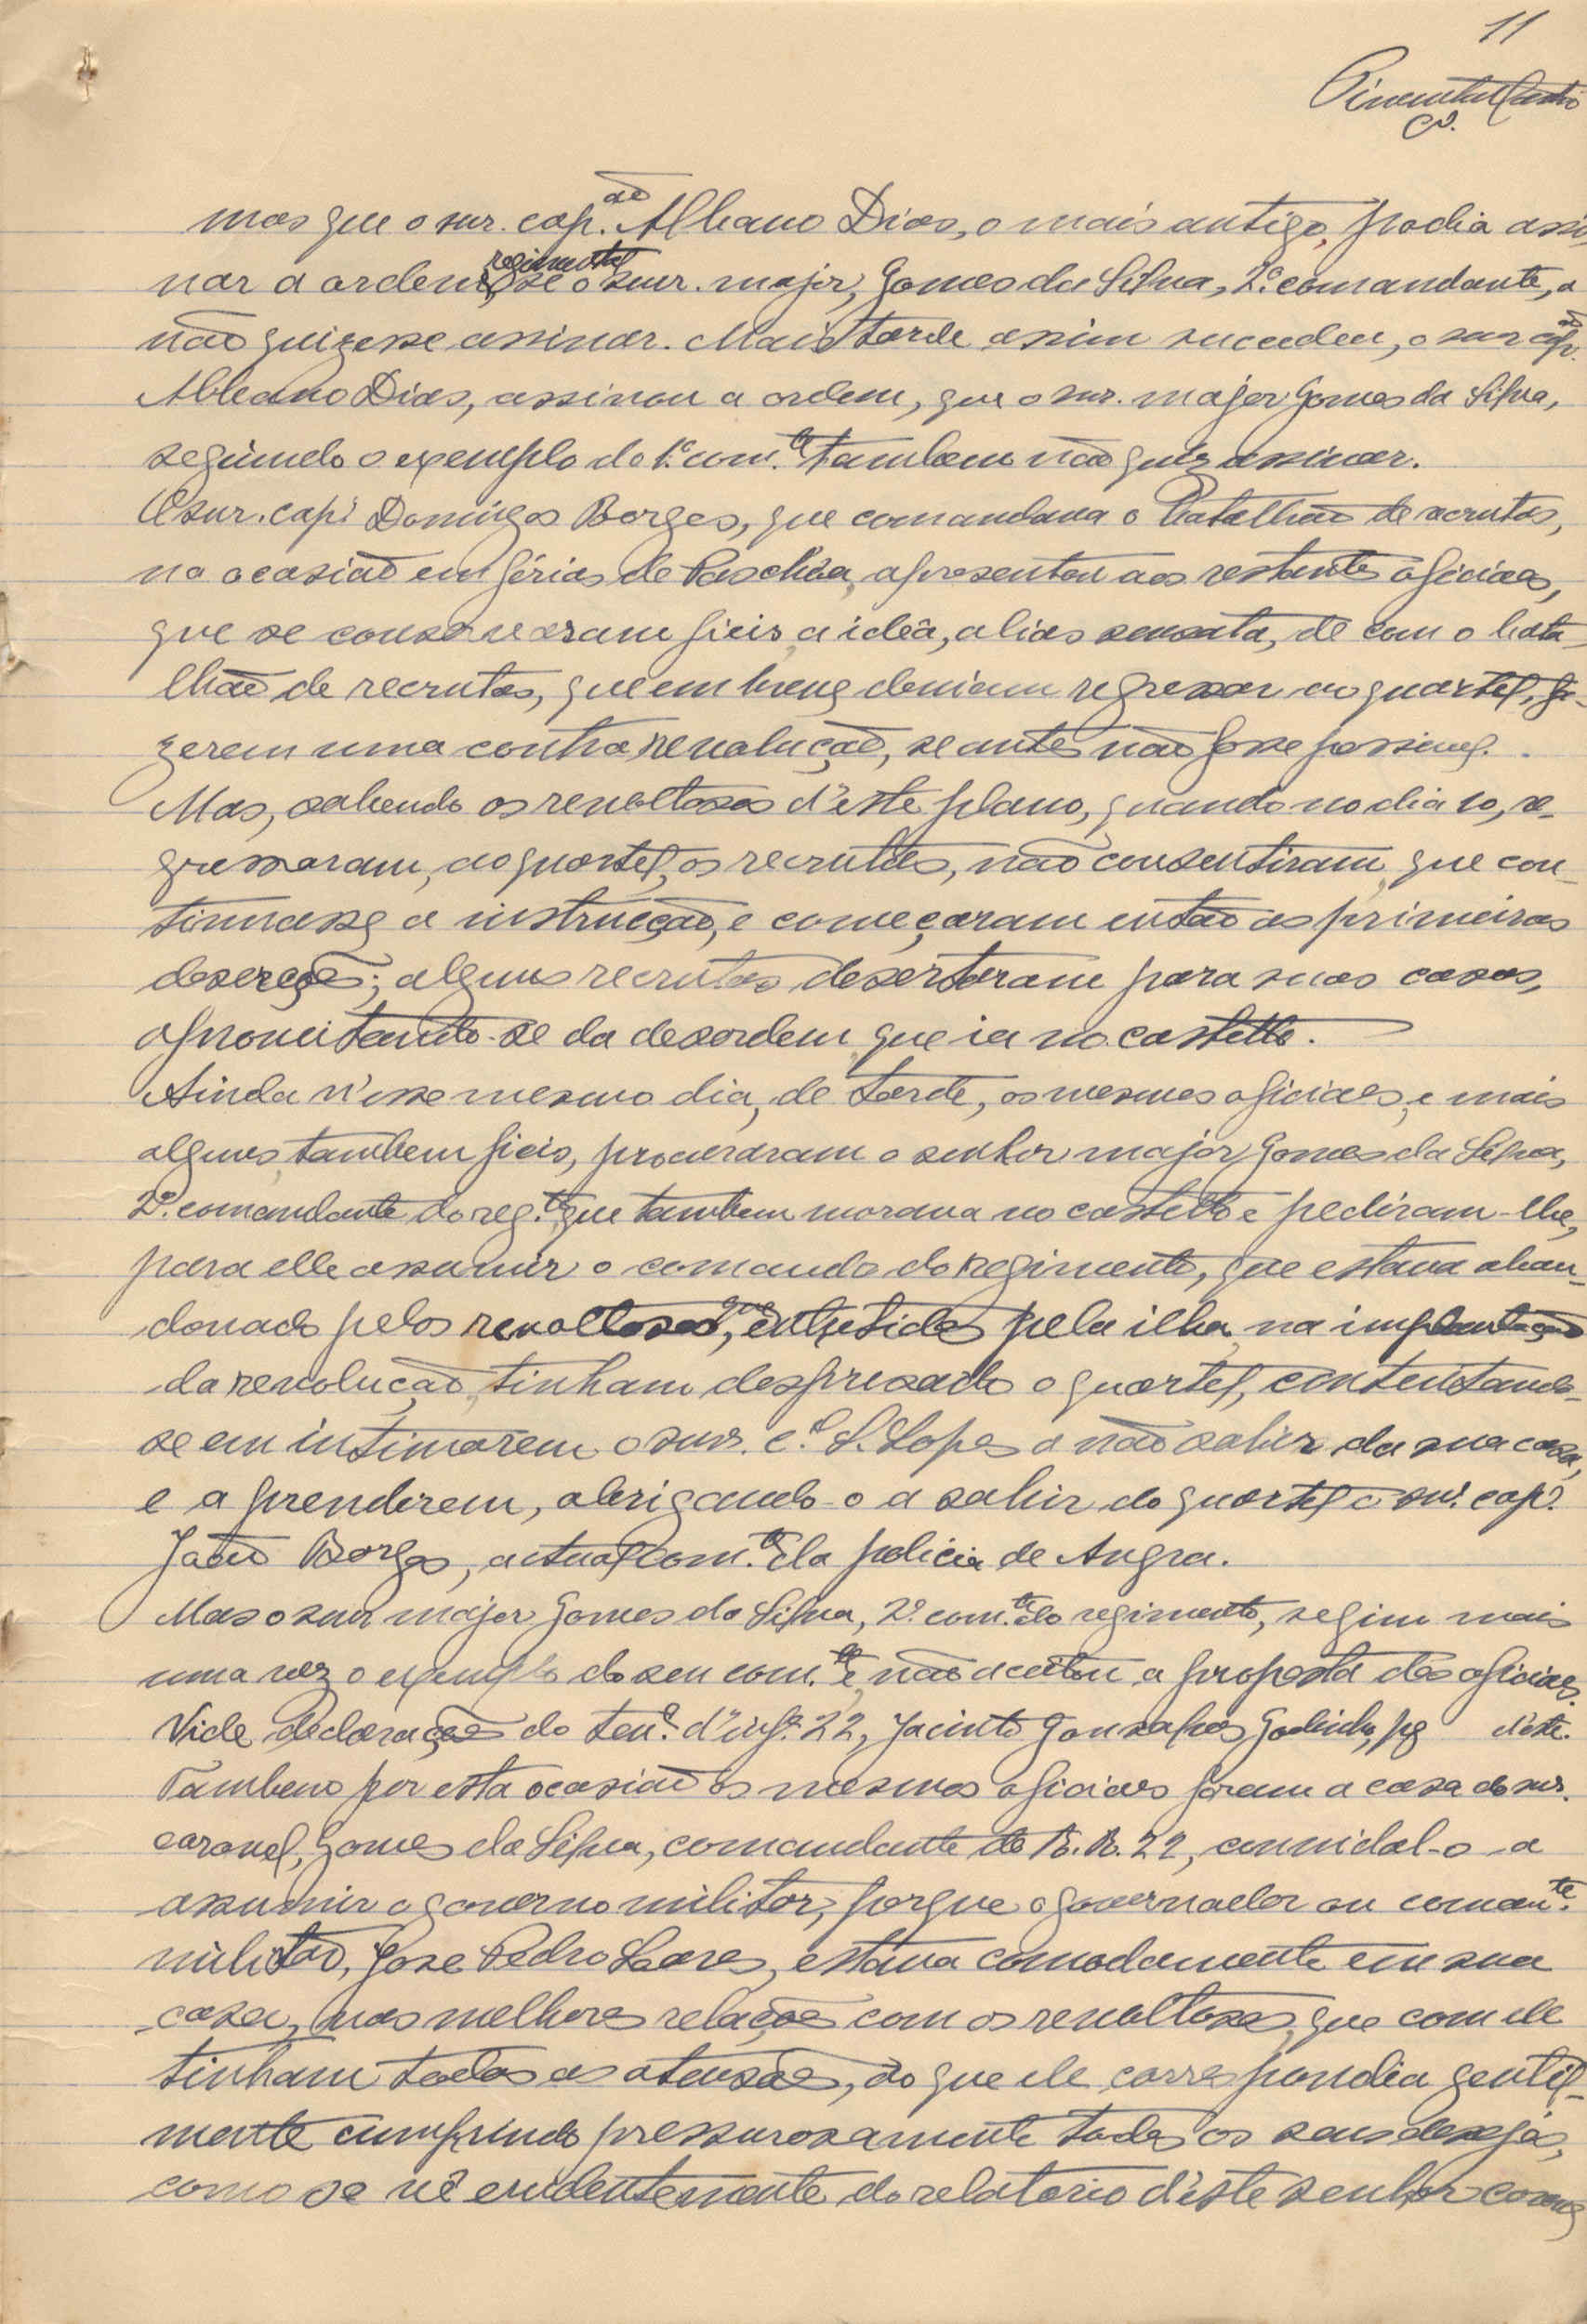 11
Pimentel Castro
mas que o snr. cap.ão Albano Dias, o mais antigo, podia assi-
nar a ordem regimental se o snr. major, Gomes da Silva, 2.º comandante, a
não quizesse assinar. Mais tarde assim sucedeu, o snr cap.ão
Albano Dias, assinou a ordem, que o snr. major Gomes da Silva,
seguindo o exemplo do 1.º com.te tambem não quiz assinar.
O snr. cap.º Domingos Borges, que comandava o Batalhão de recrutas,
na ocasião em férias de Paschôa, apresentou aos restantes oficiaes,
que se conservaram fieis, a idêa, alias sensata, de com o bata-
lhão de recrutas, que em breve deviam regressar ao quartel, fi-
zerem uma contra revolução, se antes não fosse possivel.
Mas, sabendo os revoltosos d'este plano, quando no dia 10, re-
gressaram, ao quartel, os recrutas, não consentiram, que con-
tinuasse a instrucção, e começaram então as primeiras
deserções; alguns recrutas desertaram para suas casas,
aproveitando-se da desordem que ia no castello.
Ainda n'esse mesmo dia, de tarde, os mesmos oficiaes, e mais
alguns tambem fieis, procuraram o senhor major Gomes da Silva,
2.º comandante do reg.to, que tambem morava no castello e pediram-lhe,
para elle assumir o comando do regimento, que estava aban-
donado pelos revoltosos, que entretidos pela ilha na implantação
da revolução, tinham despresado o quartel, contentando-
se em intimarem o snr. c.el S. Lopes a não sahir da sua casa,
e a prenderem, obrigando-o a sahir do quartel o snr. cap.º
João Borges, actual com.te da policia de Angra.
Mas o snr major Gomes da Silva, 2.º com.te do regimento, seguiu mais
uma vez o exemplo do seu com.te e não aceitou a proposta dos oficiaes.
Vide declarações do ten.e d'inf.a 22, Jacinto Gonsalves Godinho, pg d'este.
Tambem por esta ocasião os mesmos oficiaes foram a casa do snr.
coronel, Gomes da Silva, comandante do R. R. 22, convidal-o a
assumir o governo militar, porque o governador ou coman.te
militar, José Pedro Soares, estava comodamente em sua
casa, nas melhores relações com os revoltosos, que com ele
tinham todas as atensões, ao que ele correspondia gentil-
mente cumprindo pressurosamente todos os seus desejos,
como se vê evidentemente do relatorio d'este senhor coronel